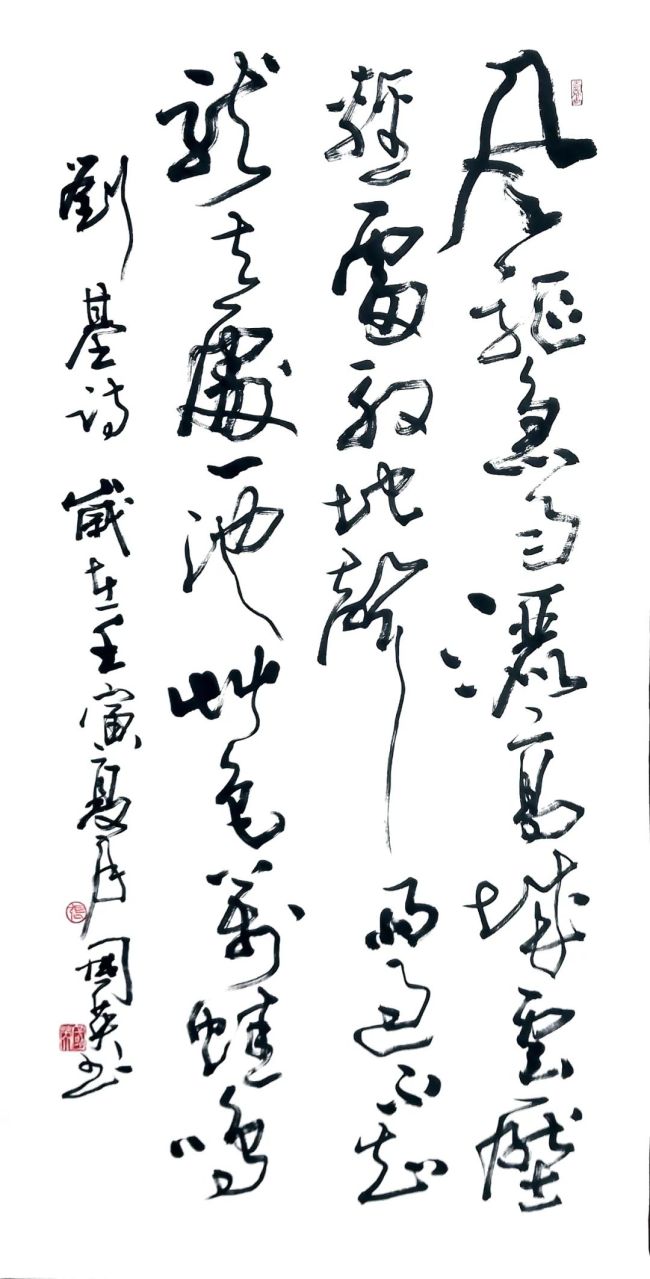 風驅急雨灑高城雲壓
輕雷殷地聲雨過不知
龍去處一池艸色萬蛙鳴
劉基詩 歲在壬寅夏月國英書